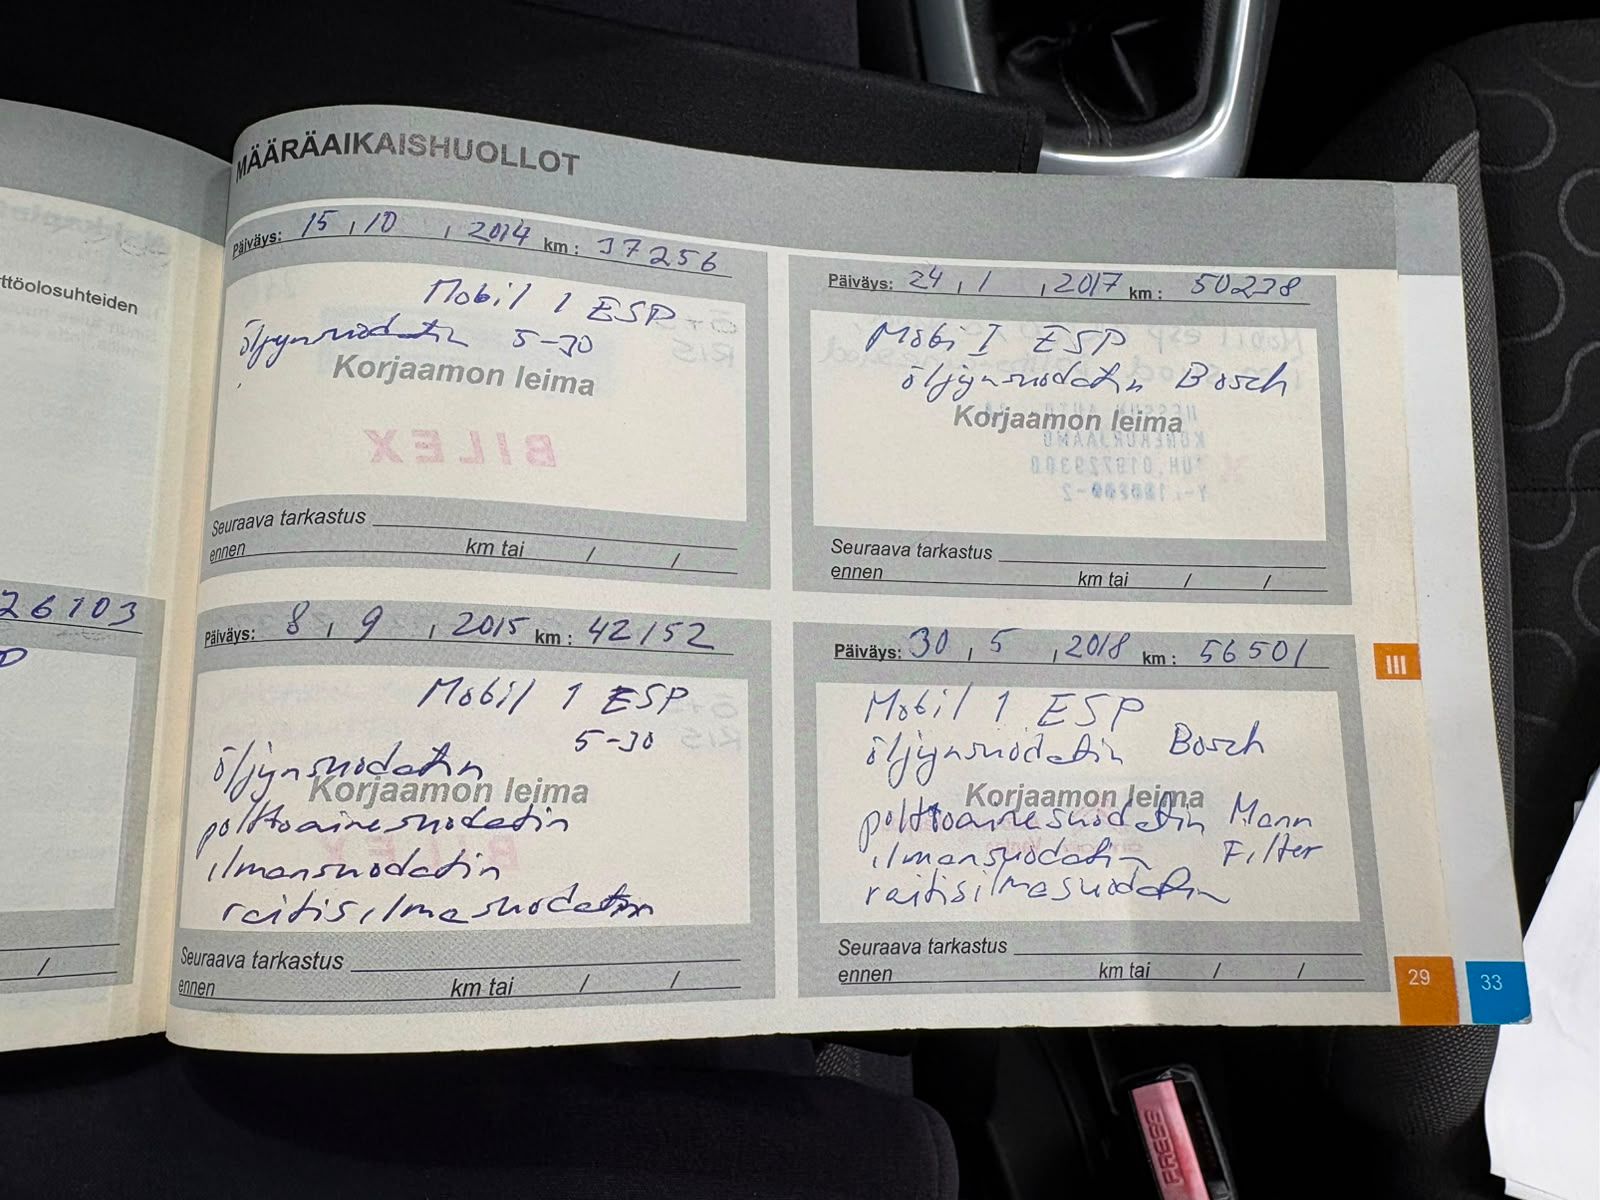 ttöolosuhteiden
26103
MÄÄRÄAIKAISHUOLLOT
Päiväys: 15 , 10 , 2014 km : 37256
Mobil 1 ESP
öljynsuodatin 5-30
Korjaamon leima
BILEX
Seuraava tarkastus
ennen km tai / /
Päiväys: 8 , 9 , 2015 km : 42152
Mobil 1 ESP
5-30
öljynsuodatin
Korjaamon leima
polttoainesuodatin
ilmansuodatin
raitisilmasuodatin
Seuraava tarkastus
ennen km tai / /
Päiväys: 24 , 1 , 2017 km : 50238
Mobi I ESP
öljynsuodatin Bosch
Korjaamon leima
Seuraava tarkastus
ennen km tai / /
Päiväys: 30 , 5 , 2018 km : 56501
Mobil 1 ESP
öljynsuodatin Bosch
Korjaamon leima
polttoainesuodatin Mann
ilmansuodatin Filter
raitisilmasuodatin
Seuraava tarkastus
ennen km tai / /
III
29
33
PRESS